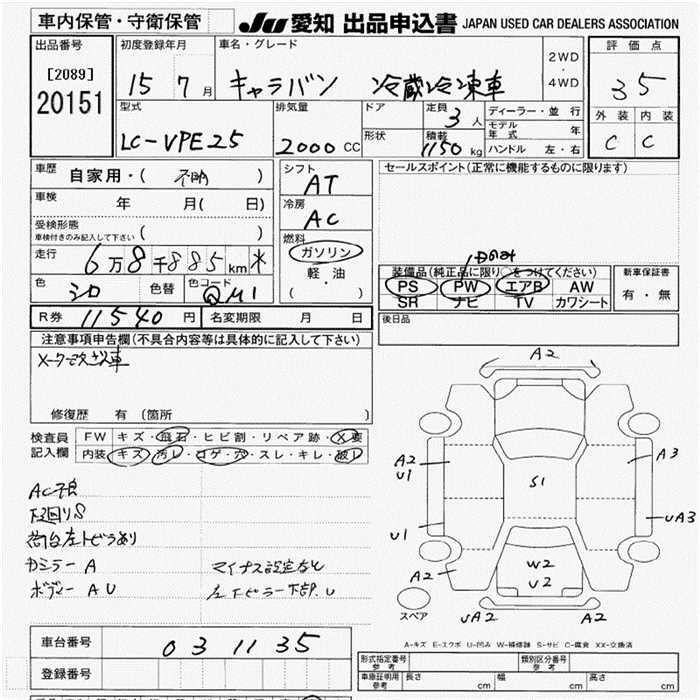 車内保管・守衛保管 JU 愛知 出品申込書 JAPAN USED CAR DEALERS ASSOCIATION
出品番号
[2089]
20151
初度登録年月
15 7月
車名・グレード
キャラバン 冷蔵冷凍車
2WD
・
4WD
評価点
35
外装 内装
C C
型式
LC-VPE25
排気量
2000 CC
ドア
形状
定員
3人
積載
1150 kg
ディーラー・並行
モデル年式 年
ハンドル 左・右
車歴
自家用・( 不明 )
車検
年 月( 日)
受検形態
車検付きのみ記入して下さい ( )
走行
6万8千885km *
色
シロ
色替
色コード
QM1
シフト
AT
冷房
AC
燃料
ガソリン
軽・油
( )
セールスポイント(正常に機能するものに限ります)
装備品(純正品に限り○をつけてください)
PS PW エアB AW
SR ナビ TV カワシート
新車保証書
有・無
R券 11540 円 名変期限 月 日
後日品
注意事項申告欄(不具合内容等は具体的に記入して下さい)
メーター改ざ車
修復歴 有(箇所 )
検査員記入欄
FW キズ・飛石・ヒビ割・リペア跡・X要
内装 キズ・汚レ・コゲ・穴・スレ・キレ・破レ
AC不良
下回りS
荷台左トビラあり
カミラー A
ボディー AU
マイナス設定なし
左下ピラー下部U
A2
A2
U1
A3
S1
U1
UA3
W2
U2
A2
UA2
A2
スペア
A-キズ E-エクボ U-凹み W-補修跡 S-サビ C-腐食 XX-交換済
車台番号 031135
登録番号
形式指定番号
参考
類別区分番号
参考
車庫証明用
参考
長さ cm 幅 cm 高さ cm